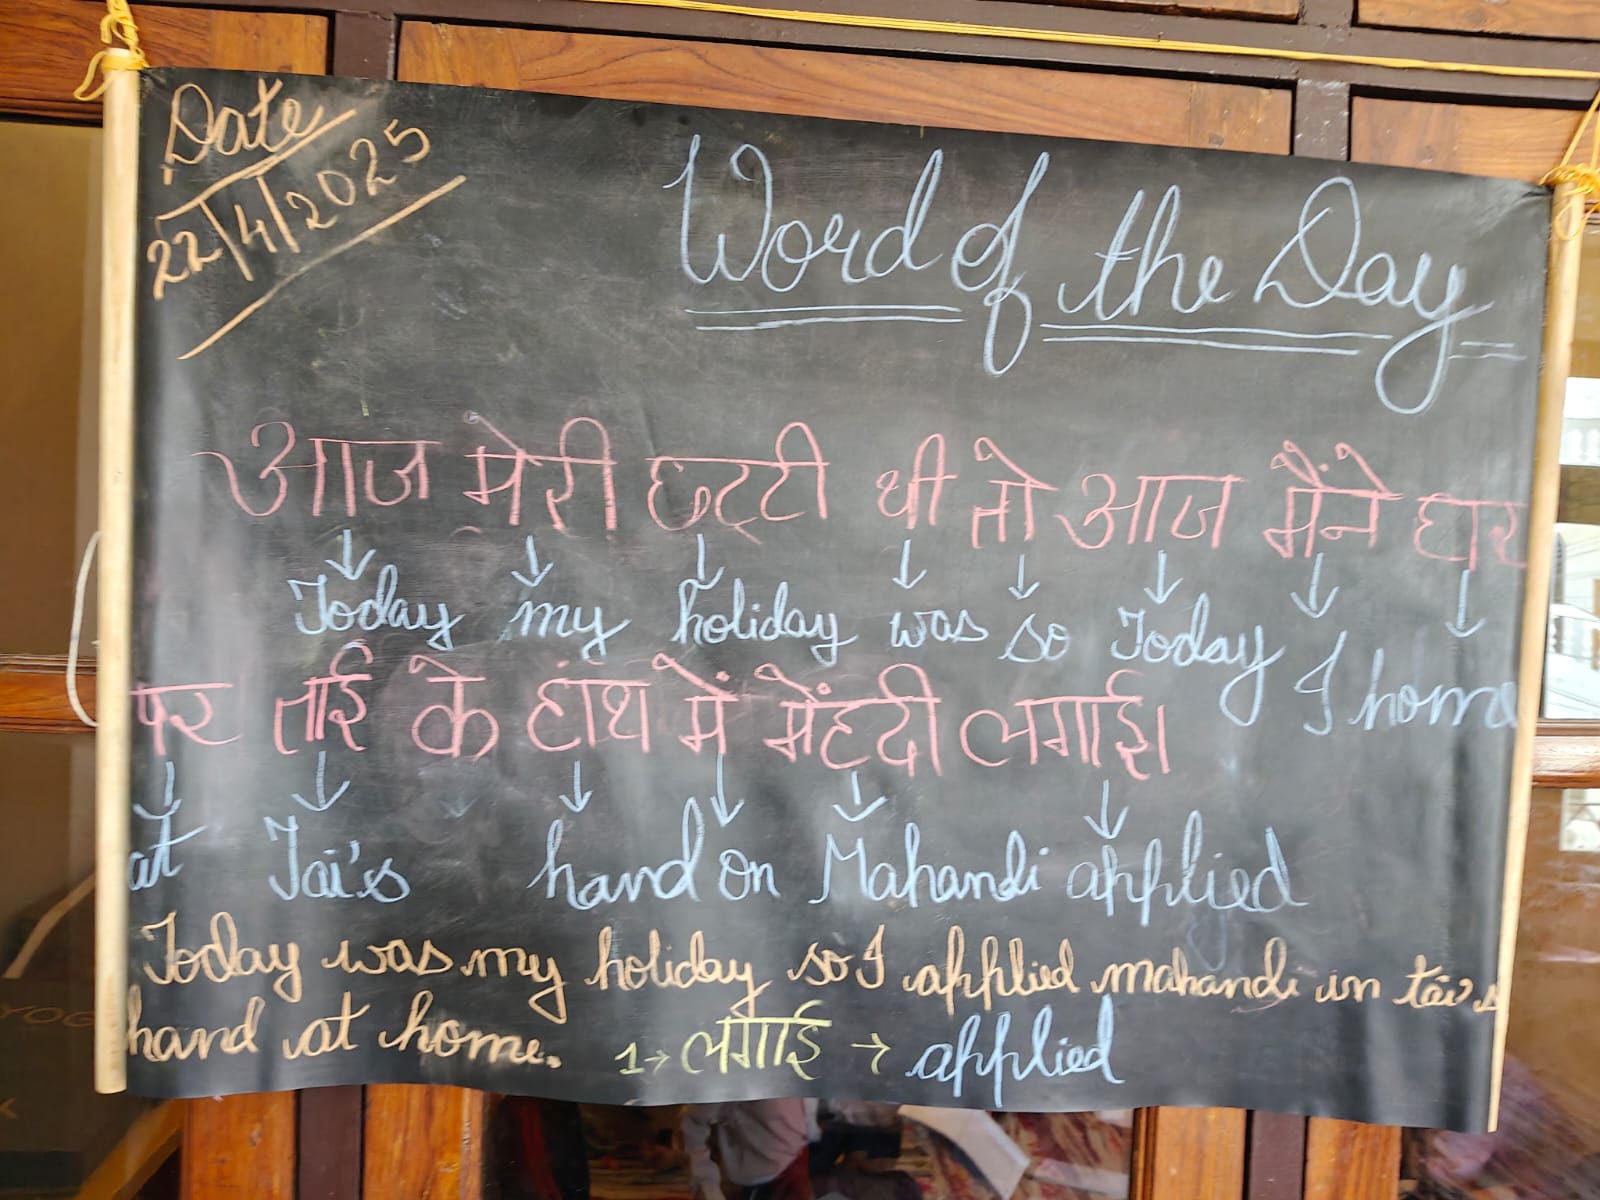 Date
22/4/2025
Word of the Day
आज मेरी छट्टी थी तो आज मैंने घार
↓ ↓ ↓ ↓ ↓ ↓ ↓ ↓
Today my holiday was so Today I home
पर ताई के हांथ में मेंहदी लगाई।
↓ ↓ ↓ ↓ ↓ ↓ ↓
at Tai's hand on Mahandi applied
Today was my holiday so I applied mahandi in tai's
hand at home. 1→ लगाई → applied